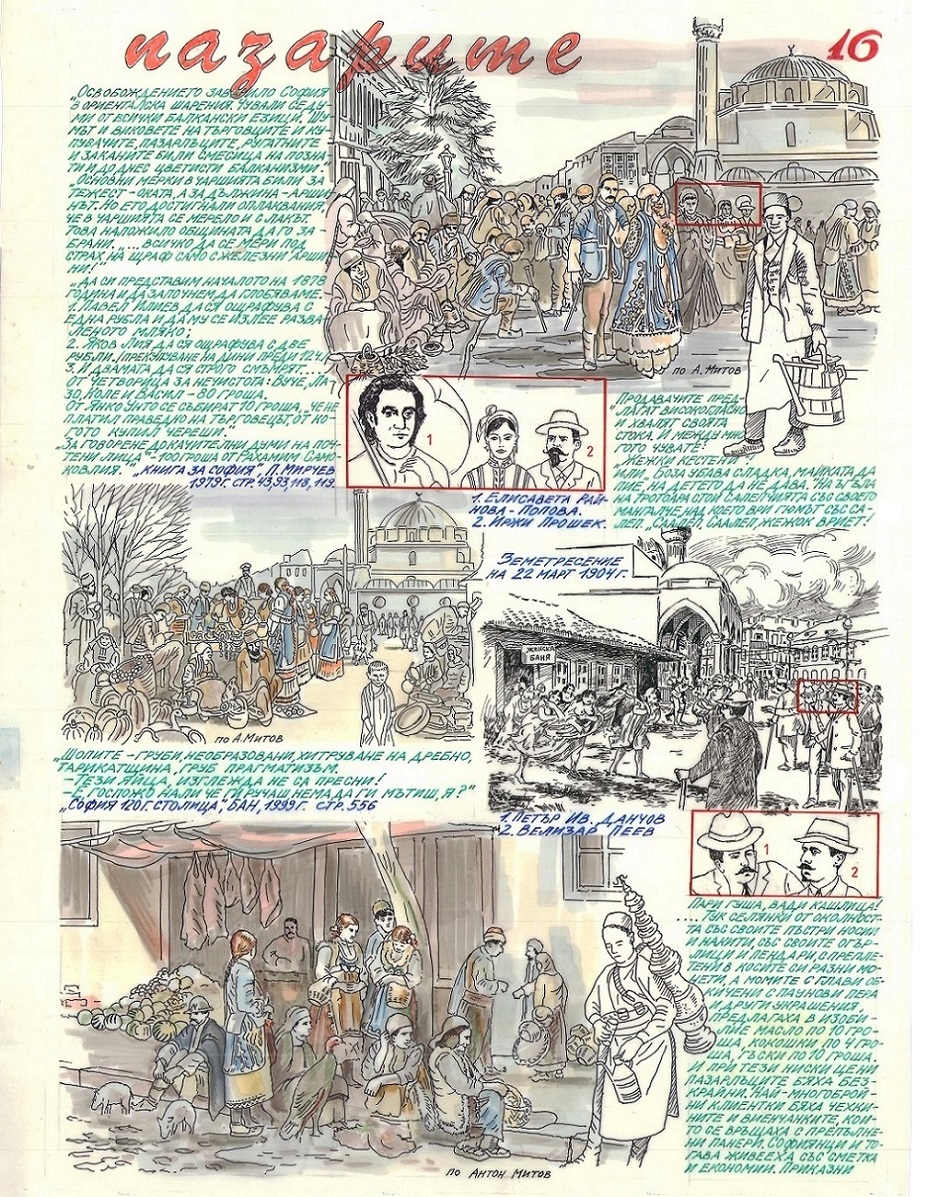 пазарите
16
„Освобождението заварило София
в ориенталска шарения. Чували се ду-
ми от всички балкански езици. Шу-
мът и виковете на търговците и ку-
пувачите, пазарлъците, ругатните
и заканите били смесица на позна-
ти и до днес цветисти балканизми."
„Основни мерки в чаршията били за
тежест – оката, а за дължина – аршин-
ът. Но ето достигнали оплаквания,
че в чаршията се мерело и с лакът.
Това наложило общината да го за-
брани. .... Всичко да се мери под
страх на щраф само с железни арши-
ни!"
„Да си представим началото на 1878
година и да започнем да глобяваме:
1. Павел Илиев да ся ощрафува с
една рубла и да му се излее разва-
леното мляко;
2. Яков Лия да ся ощрафува с две
рубли. (прекупуване на дини преди 12ч.)
3. И двамата да ся строго смъмрят....
От четворица за нечистота: Вуче, Ла-
зо, Коле и Васил – 80 гроша.
От Янко Энто се събират 10 гроша, че не
платил праведно на търговецът, от ко-
гото купил череши."
„За говорене докачителни думи на поч-
тени лица" – 100 гроша от Рахамим Само-
ковлия." „Книга за София", П. Мирчев
1979г. стр. 43,93,118, 119.
по А. Митов
1
2
1. Елисавета Рай-
нова – Попова.
2. Иржи Прошек.
„Продавачите пред-
лагат високогласно
и хвалят своята
стока. И между мно-
гото чувате:
– „Жежки кестени"
..... „Боза убава сладка, майката да
пие, на детето да не дава." На ъгъла
на тротоара стои салепчията със своето
мангалче, над което ври гюмът със са-
леп. „Саалеп, саалеп, жежок вриет!"
по А. Митов
Земетресение
на 22 март 1904г.
ЖЕНСКА
БАНЯ
„Шопите – груби, необразовани, хитруване на дребно,
тарикатщина, груб прагматизъм.
– Тези яйца, изглежда не са пресни!
– Е, госпожо нали че ги ручаш, нема да ги мътиш, я?"
„София 120г. столица", БАН, 1999г. стр. 556
1. Петър Ив. Данчов
2. Велизар Пеев
1
2
Пари гуша, вади кашлица!
.... Тук селянки от околност-
та със своите пъстри носии
и накити, със своите огър-
лици и пендари, с преплете-
тени в косите си разни мо-
нети, а момите с глави об-
кичени с паунови пера
и други украшения
предлагаха в изоби-
лие масло по 10 гро-
ша, кокошки по 4 гро-
ша, гъски по 10 гроша.
И при тези ниски цени
пазарлъците бяха без-
крайни. Най-многоброй-
ни клиентки бяха чехки-
ните и виенчанките, кои-
то се връщаха с препълне-
ни панери. Софиянци и то-
гава живееха със сметка
и економии. Приказни
по Антон Митов